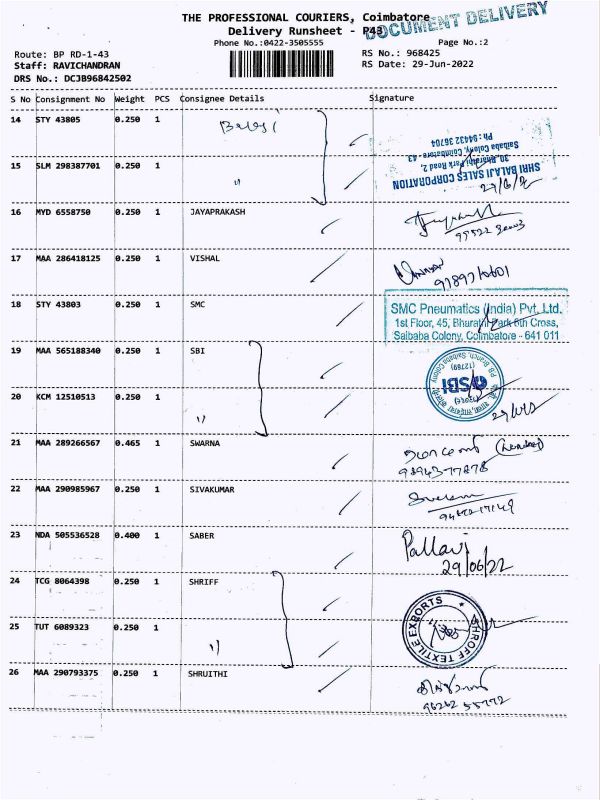 THE PROFESSIONAL COURIERS, Coimbatore
DOCUMENT DELIVERY
Delivery Runsheet - P43
Phone No.:0422-3505555
Page No.:2
Route: BP RD-1-43
RS No.: 968425
Staff: RAVICHANDRAN
RS Date: 29-Jun-2022
DRS No.: DCJB96842502
S No Consignment No Weight PCS Consignee Details Signature
14 STY 43805 0.250 1
SHRI BALAJI SALES CORPORATION
30, Bharathi Park Road 2,
Saibaba Colony, Coimbatore - 43
Ph : 94432 36704
15 SLM 298387701 0.250 1 "
16 MYD 6558750 0.250 1 JAYAPRAKASH
17 MAA 286418125 0.250 1 VISHAL
18 STY 43803 0.250 1 SMC
SMC Pneumatics (India) Pvt. Ltd.
1st Floor, 45, Bharathi Park 6th Cross,
Saibaba Colony, Coimbatore - 641 011
19 MAA 565188340 0.250 1 SBI
SBI
20 KCM 12510513 0.250 1 "
21 MAA 289266567 0.465 1 SWARNA
22 MAA 290985967 0.250 1 SIVAKUMAR
23 NDA 505536528 0.400 1 SABER
Pallavi
29/06/22
24 TCG 8064398 0.250 1 SHRIFF
SHROFF TEXTILE EXPORTS
25 TUT 6089323 0.250 1 "
26 MAA 290793375 0.250 1 SHRUITHI